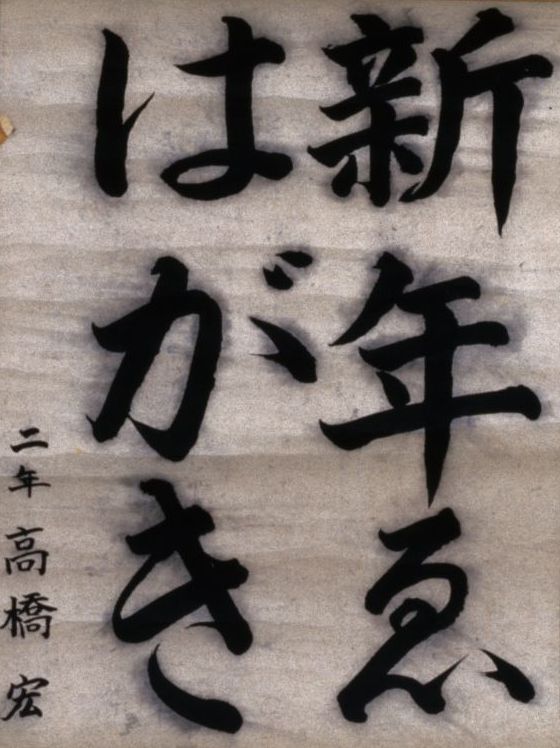 新年ゑ
はがき
二年 高橋宏